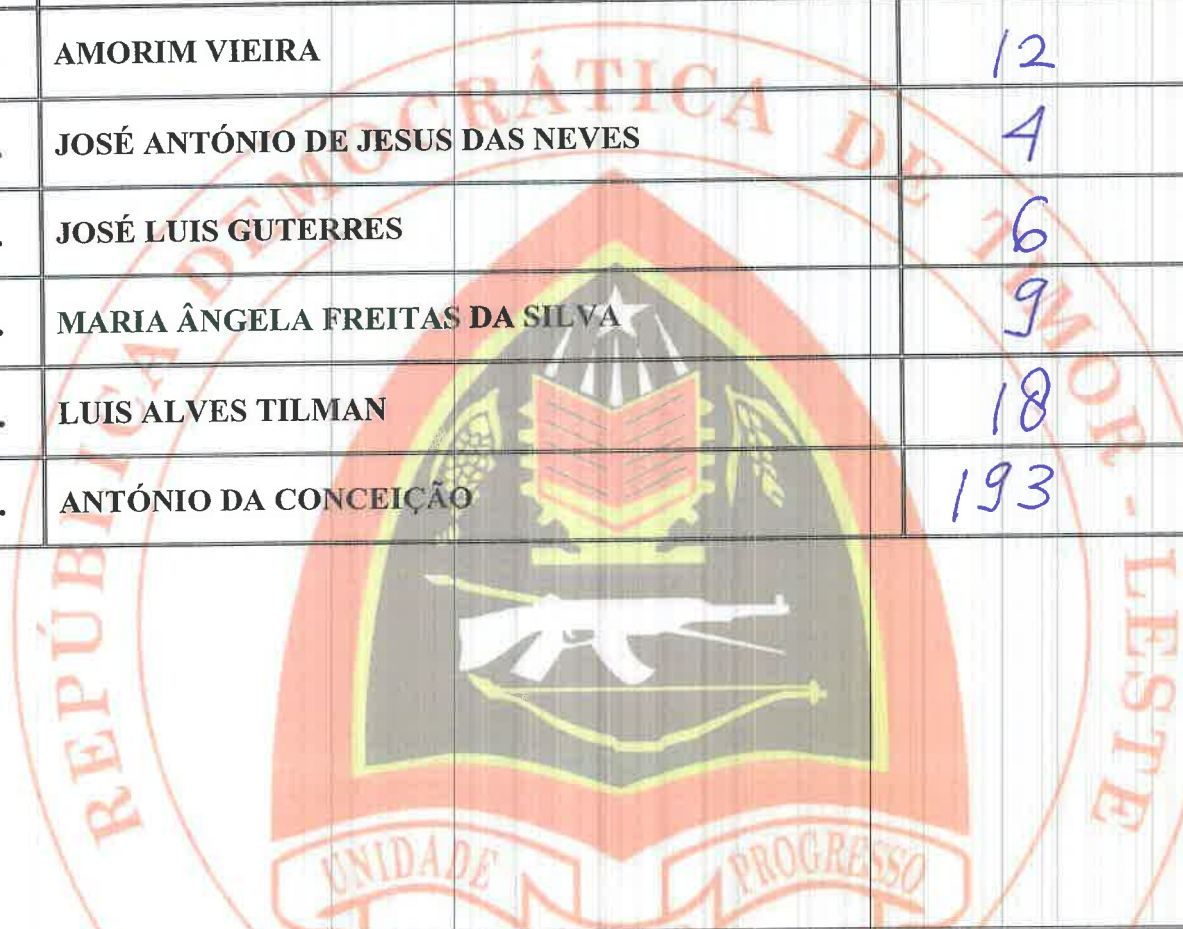 AMORIM VIEIRA 12
. JOSÉ ANTÓNIO DE JESUS DAS NEVES 4
. JOSÉ LUIS GUTERRES 6
. MARIA ÂNGELA FREITAS DA SILVA 9
. LUIS ALVES TILMAN 18
. ANTÓNIO DA CONCEIÇÃO 193
REPÚBLICA DEMOCRÁTICA DE TIMOR - LESTE
UNIDADE PROGRESSO